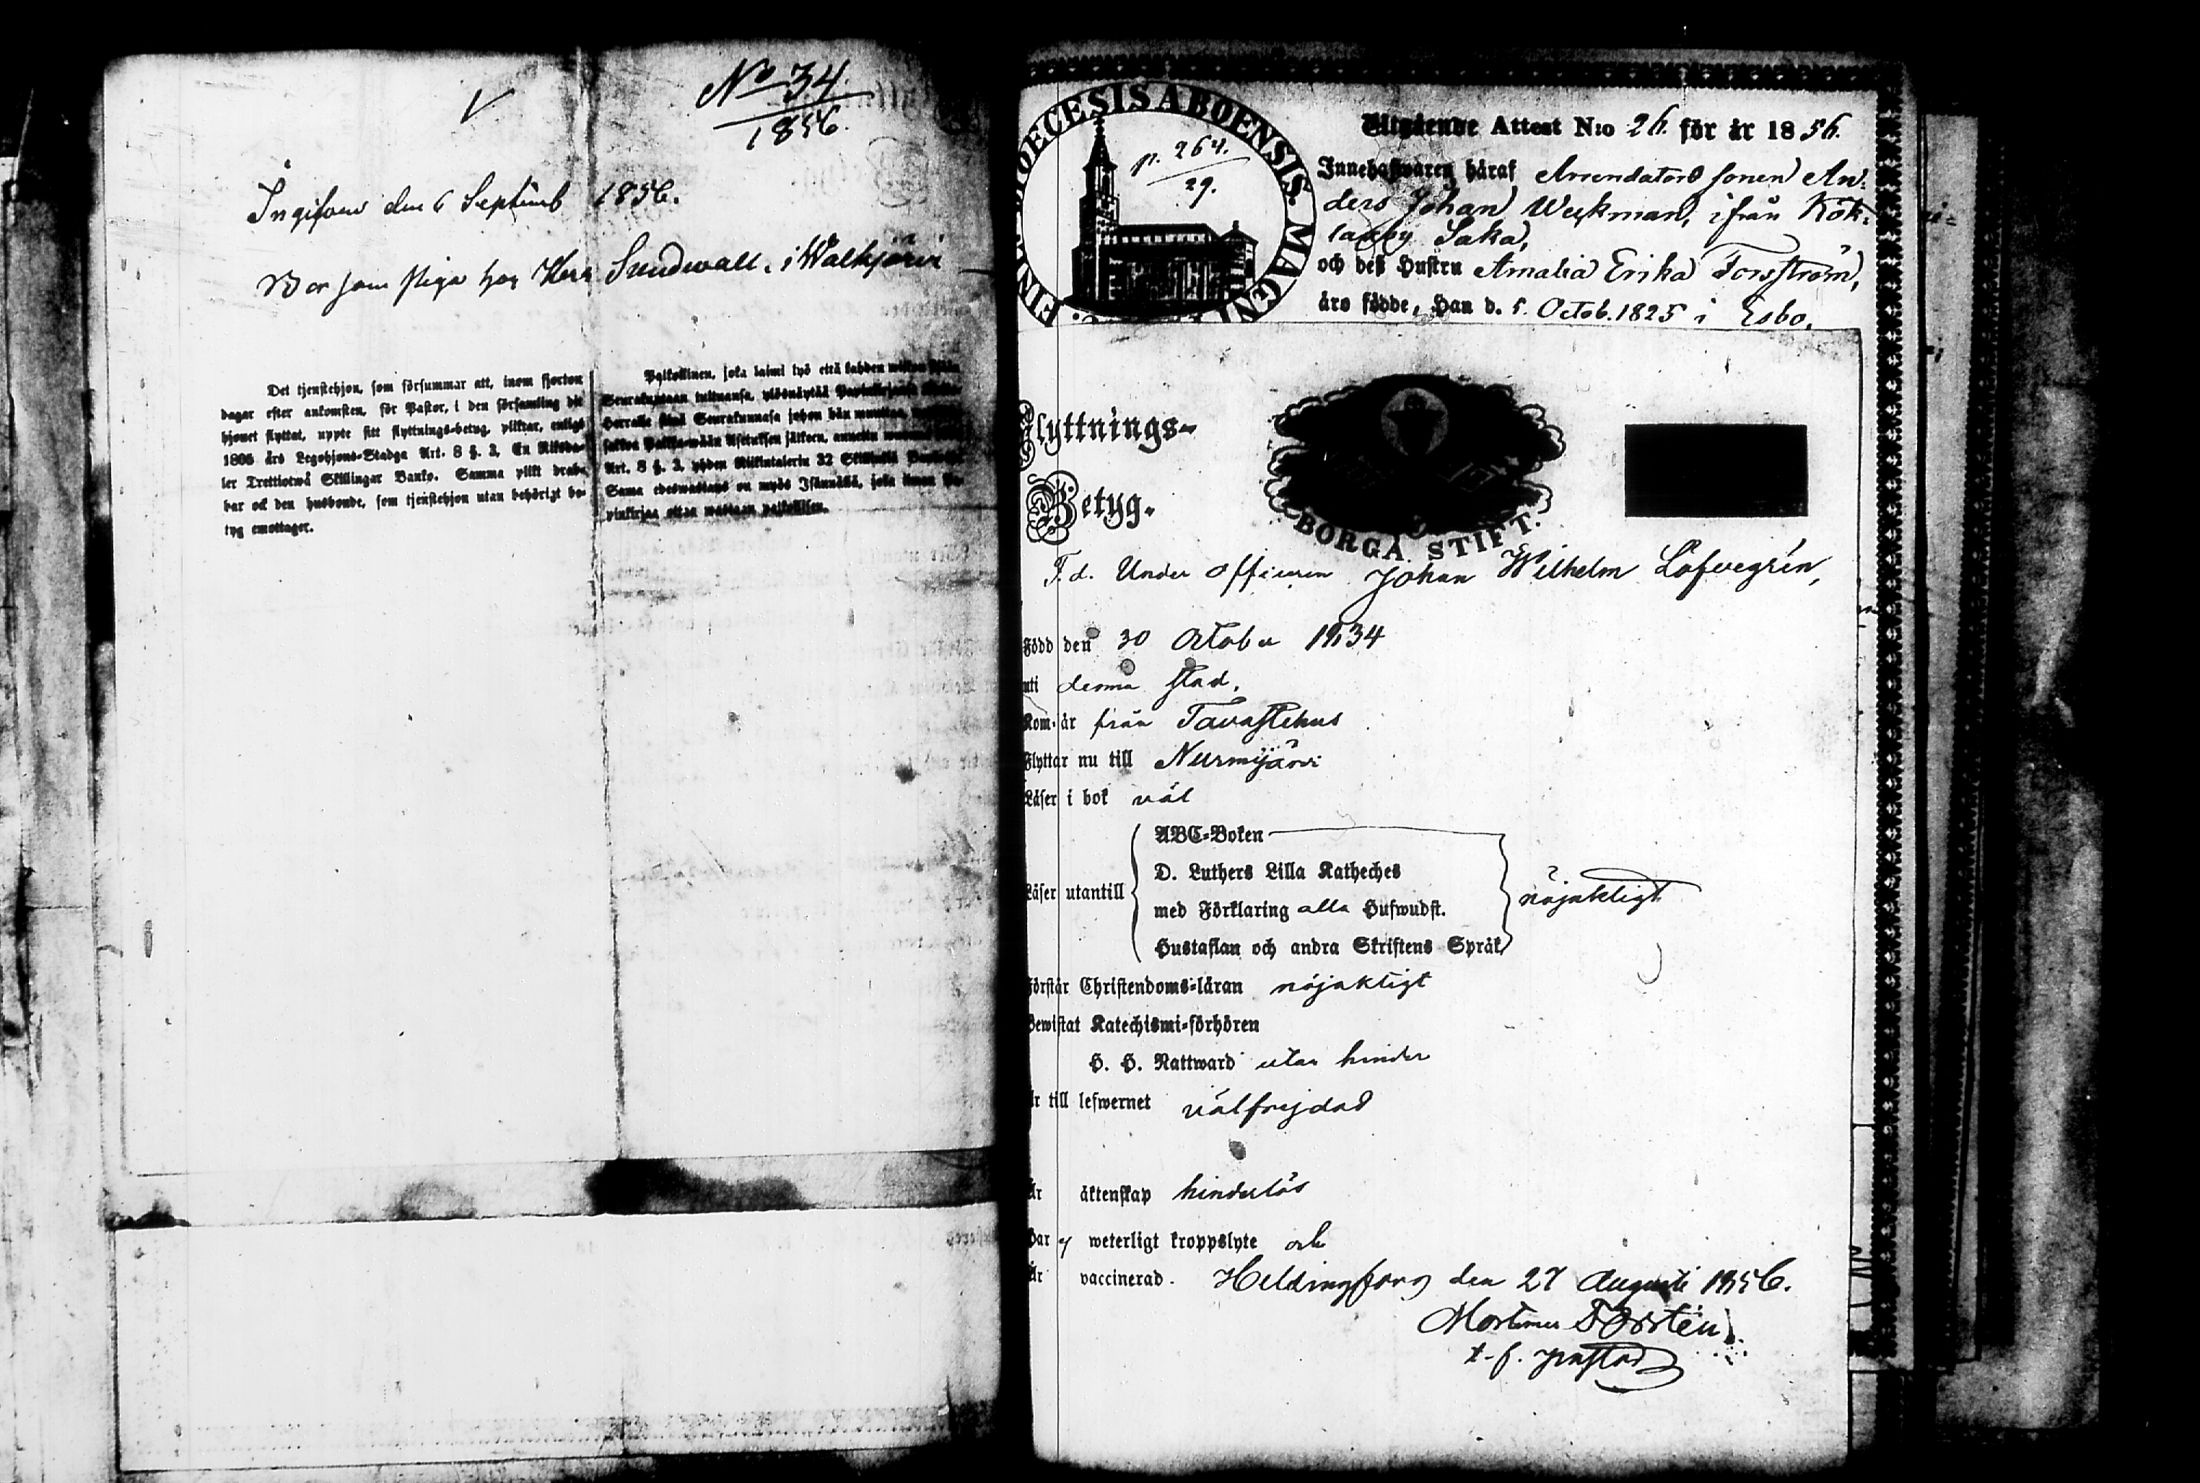 No 34
1856.
Ingifven den 6 Septemb 1856.
Bor som piga hos Herr Sundwall, i Walkjärvi
Det tjenstehjon, som försummar att, inom fjorton
dagar efter ankomsten, för Pastor, i den församling dit
hjonet flyttat, uppte sitt flyttnings-betyg, pliktar, enligt
1805 års Legohjons-Stadga Art. 8 §. 3, En Riksda-
ler Trettiotwå Skillingar Banko. Samma plikt drab-
bar ock den husbonde, som tjenstehjon utan behörigt be-
tyg emottager.
Palkollinen, joka laimi lyö että kahden wiikon
Seurakuntaan tultuansa, ylösnäyttää
Herralle siinä Seurakunnasa johon hän muuttaa,
Art. 8 §. 3, yhden Riikintalerin 32 Skillinkiä
Sama edeswastaus on myös Isännällä, joka ilman Pa-
pinkirjaa ottaa wastaan palkollisen.
DIOECESIS ABOENSIS. MAGNI
p. 264.
29.
Utgående Attest N:o 26. för år 1856.
Innehafwaren häraf Arrendators sonen An-
ders Johan Weckman, ifrån Kok-
Saka,
och deß Hustru Amalia Erika Forsström,
äro födde, Han d. 5. Octob. 1825 i Esbo,
Flyttnings-
Betyg.
BORGÅ STIFT.
F. d. Under officeren Johan Wilhelm Löfvegrén,
Född den 30 October 1834
uti denna stad,
Kom - år från Tavastehus
Flyttar nu till Nurmijärvi
Läser i bok väl
ABC-Boken
D. Luthers Lilla Katheches
Läser utantill
med Förklaring alla Hufwudst.
nöjaktigt
Hustaflan och andra Skriftens Språk
Förstår Christendoms-läran nöjaktigt
Bewistat Katechismi-förhören
H. H. Nattward utan hinder
Är till lefwernet välfrejdad
Är äktenskap hinderlös
Har ej weterligt kroppslyte och
Är vaccinerad. Helsingfors den 27 Augusti 1856.
t. f. pastor